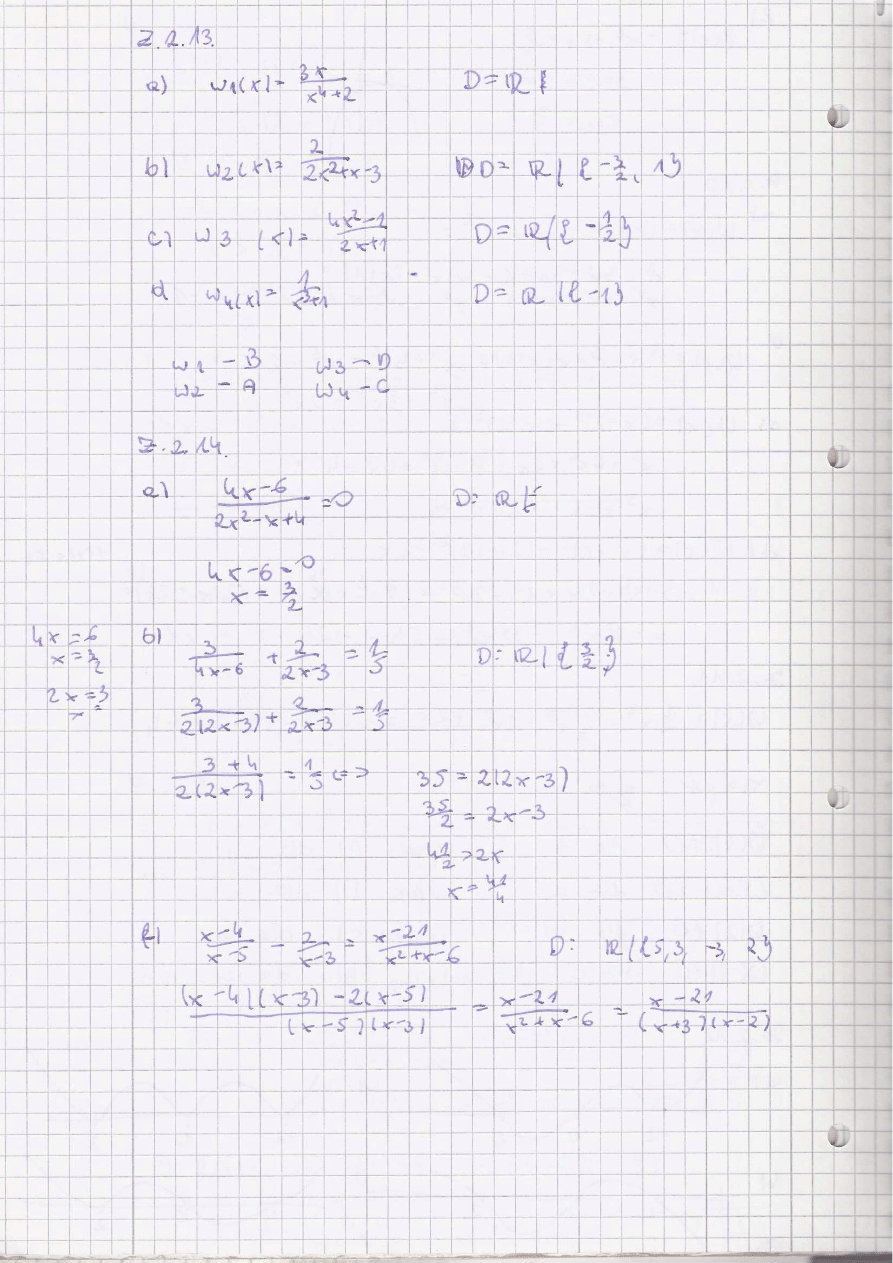 Z.2.13.
a) w1(x) = 3x/(x^4+2) D = ℝ
b) w2(x) = 2/(2x^2+x-3) D = ℝ \ {-3/2, 1}
c) w3 (x) = (4x^2-1)/(2x+1) D = ℝ \ {-1/2}
d w4(x) = 1/(x^3+1) D = ℝ \ {-1}
w1 - B w3 - D
w2 - A w4 - C
Z.2.14.
a) (4x-6)/(2x^2-x+4) = 0 D: ℝ
4x-6 = 0
x = 3/2
4x = 6
x = 3/2
2x = 3
x =
b) 3/(4x-6) + 2/(2x-3) = 1/5 D: ℝ \ {3/2}
3/(2(2x-3)) + 2/(2x-3) = 1/5
(3+4)/(2(2x-3)) = 1/5 <=> 35 = 2(2x-3)
35/2 = 2x-3
41/2 = 2x
x = 41/4
(x-4)/(x-5) - 2/(x-3) = (x-21)/(x^2+x-6) D: ℝ \ {5, 3, -3, 2}
((x-4)(x-3) - 2(x-5))/((x-5)(x-3)) = (x-21)/(x^2+x-6) = (x-21)/((x+3)(x-2))